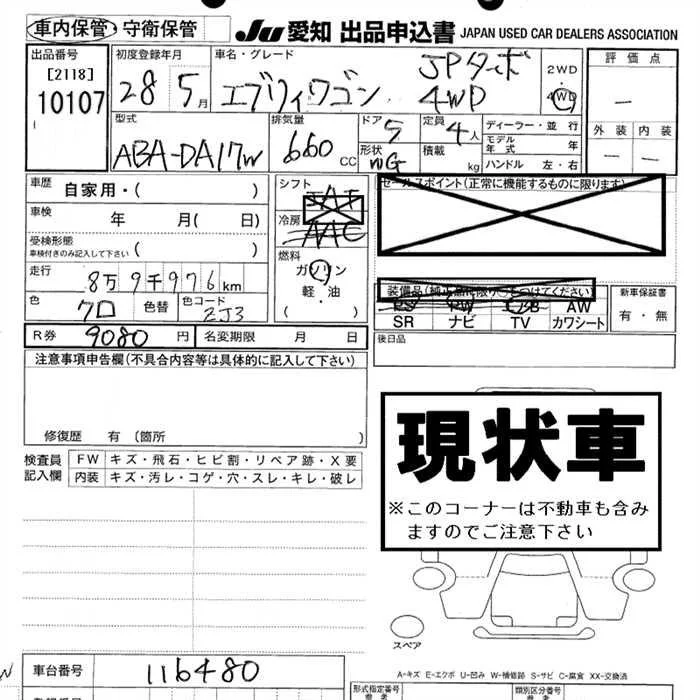 車内保管・守衛保管
JU 愛知 出品申込書 JAPAN USED CAR DEALERS ASSOCIATION
出品番号 初度登録年月 車名・グレード 評価点
[2118] 10107
28 5月 エブリィワゴン JPターボ 4WD 2WD 4WD
外装 内装
型式 排気量 ドア 定員 ディーラー・並行
ABA-DA17W 660CC 5 4人 モデル年式 年
形状 WG 積載 kg ハンドル 左・右
車歴 自家用・( ) シフト セールスポイント(正常に機能するものに限ります)
車検 年 月( 日) 冷房 AAC
受検形態 車検付きのみ記入して下さい ( ) 燃料
走行 8万9千976km ガソリン
軽・油
( )
色 クロ 色替 色コード 2J3
装備品(純正品に限り○をつけてください) 新車保証書
PS PW AW 有・無
SR ナビ TV カワシート
R券 9080円 名変期限 月 日 後日品
注意事項申告欄(不具合内容等は具体的に記入して下さい)
修復歴 有 (箇所 )
検査員記入欄 FW キズ・飛石・ヒビ割・リペア跡・X要
内装 キズ・汚レ・コゲ・穴・スレ・キレ・破レ
現状車
※このコーナーは不動車も含み
ますのでご注意下さい
スペア
A-キズ E-エクボ U-凹み W-補修跡 S-サビ C-腐食 XX-交換済
車台番号 116480 形式指定番号 類別区分番号
参考 参考